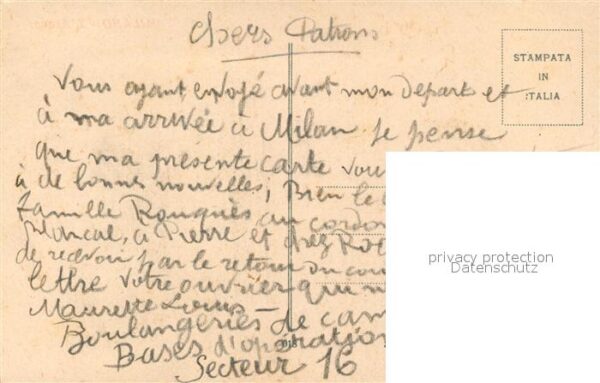 Chers Patrons
STAMPATA
IN
ITALIA
Vous ayant envoyé avant mon départ et
à ma arrivée à Milan je pense
que ma présente carte vou
à de bonnes nouvelles, Bien le
famille Rouquès au cordon
à Pierre et chez Ro
de recevoir par le retour du cou
lettre votre ouvrier qui
Maurette Louis
Boulangeries de cam
Bases d'opération
Secteur 16
privacy protection
Datenschutz